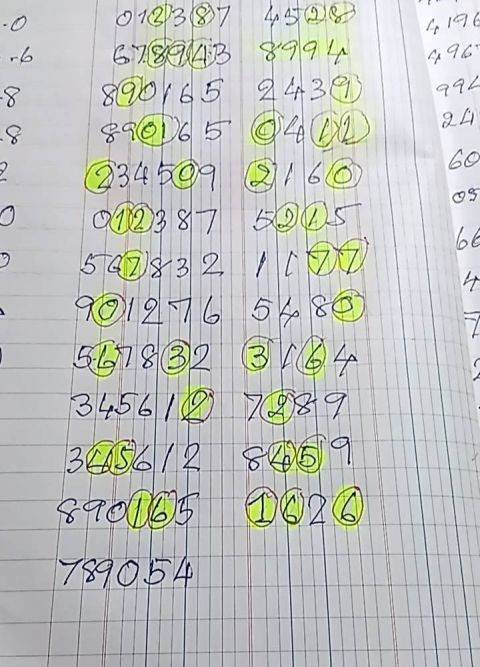 -0 012387 4528
-6 678943 8994 4196
-8 890165 2439 4967
-8 890165 0411 994
2 234509 2160 24
0 012387 5215 60
0 567832 1177 05
901276 5480 66
567832 3164 4
345612 7289 7
345612 8459 2
890165 1626
789054